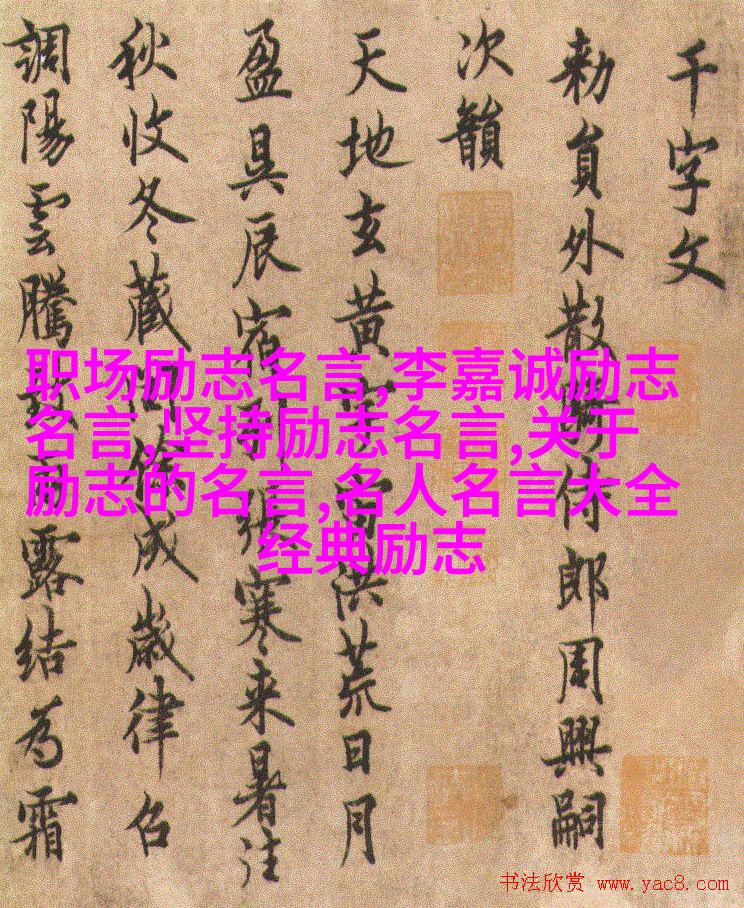 千字文
勑員外散騎侍郎周興嗣
次韻
天地玄黃宇宙洪荒日月
盈昃辰宿列張寒來暑往
秋收冬藏閏餘成歲律召
調陽雲騰致雨露結為霜
职场励志名言,李嘉诚励志
名言,坚持励志名言,关于
励志的名言,名人名言大全
经典励志
书法欣赏 www.yac8.com